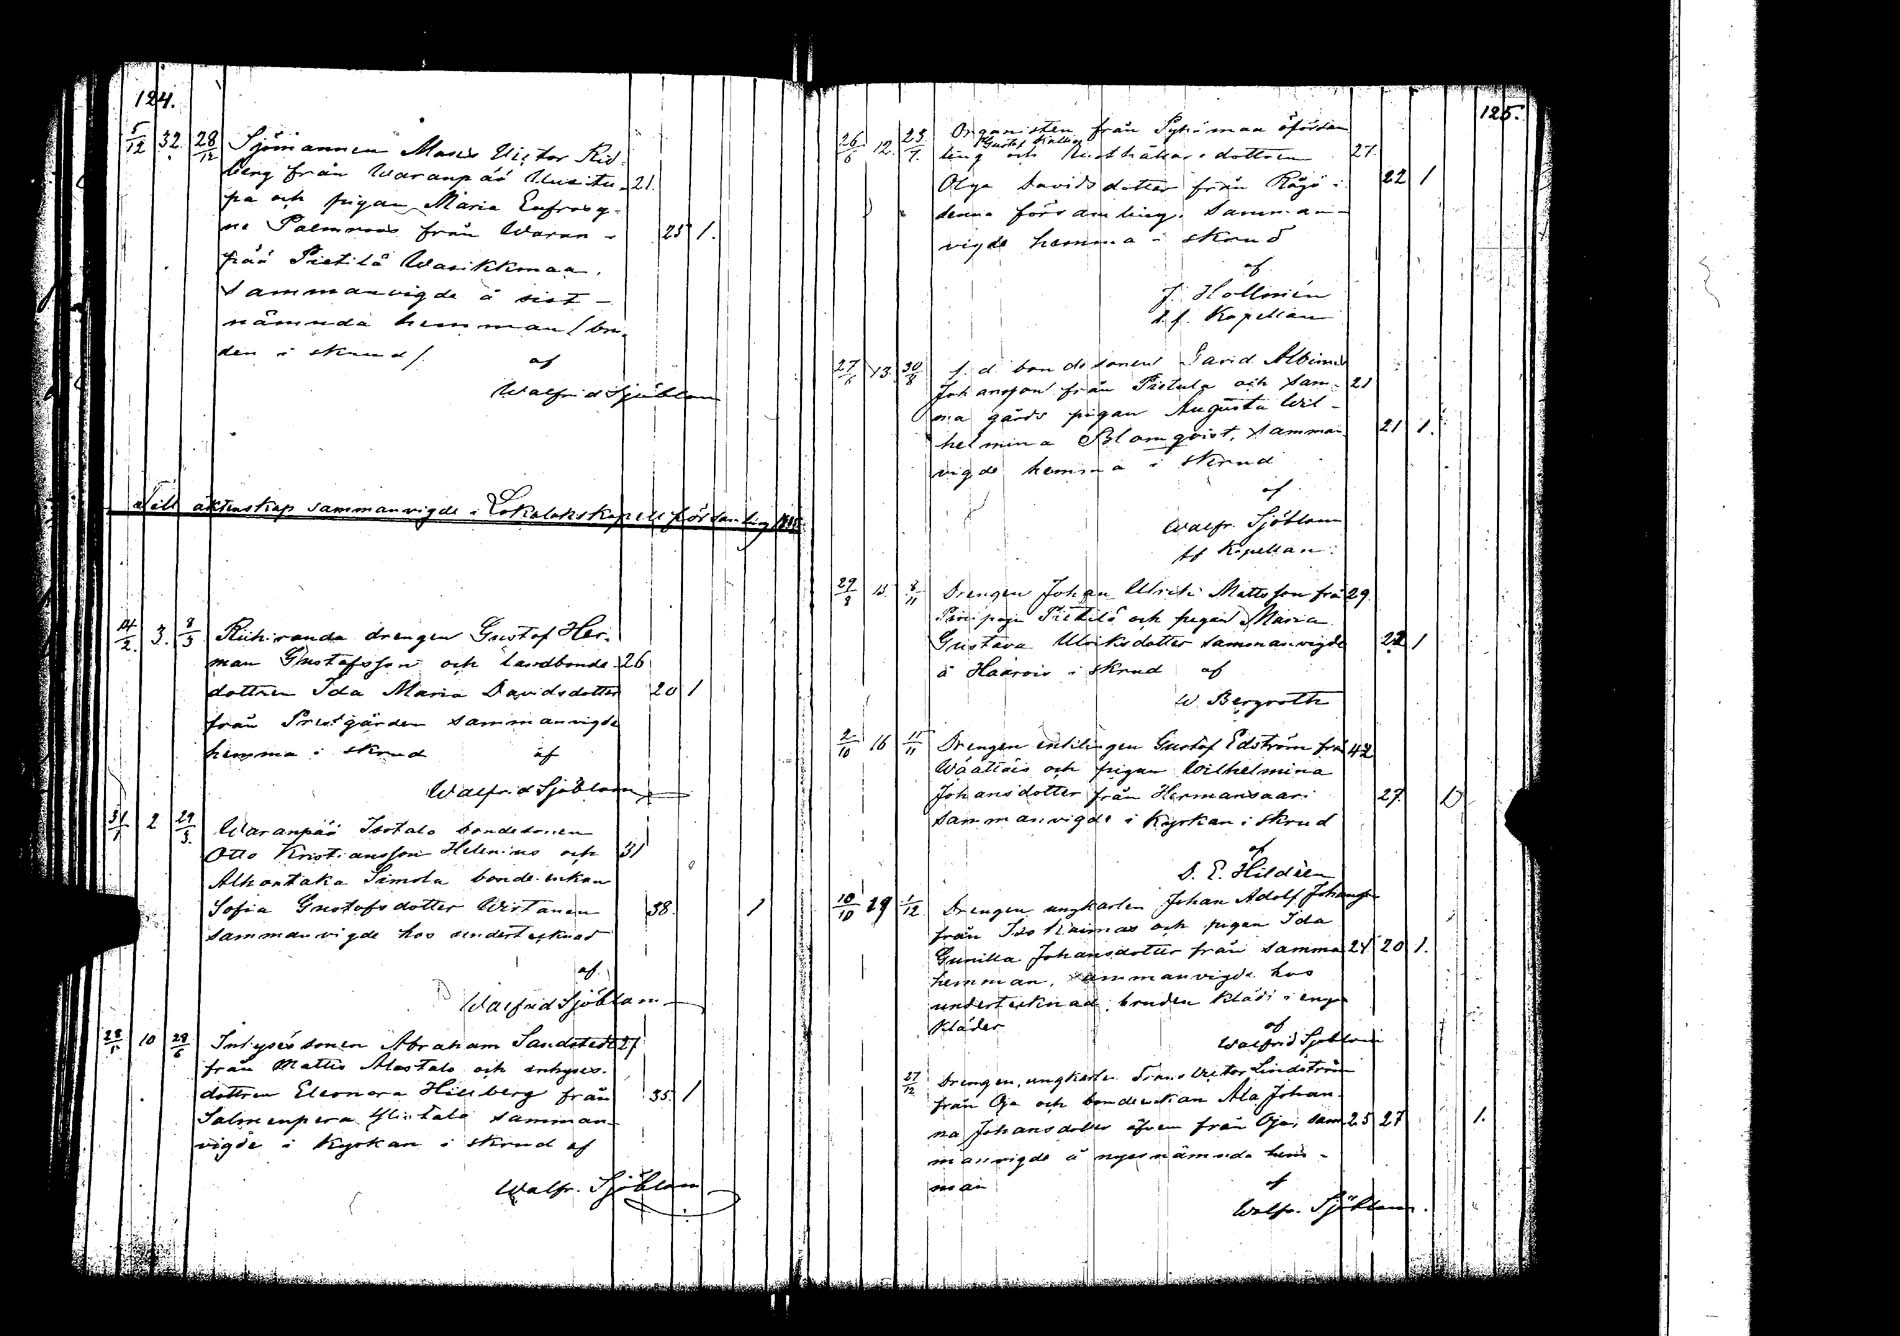 124.
5/12 32. 28/12 Sjömannen Moses Victor Rid-
berg från Waranpää Uusitu- 21.
pa och pigan Maria Eufrosy-
ne Palmroos från Waran- 25 1.
pää Pietilä Wasikkmaa.
Sammanvigde å sist-
nämnda hemman (bru-
den i skrud). af
Walfrid Sjöblom
Till äktenskap sammanvigde i Lokalaks kapellförsamling
14/2. 3. 8/3 Riihiranda drengen Gustaf Her-
man Gustafsson och landbonde- 26
dottren Ida Maria Davidsdotter 20 1
från Prestgården sammanvigde
hemma i skrud af
Walfrid Sjöblom
31/1 2 29/3. Waranpää Isotalo bondesonen
Otto Kristiansson Helenius och 31
Alhontaka Simola bonde-enkan
Sofia Gustafsdotter Wirtanen 38. 1
sammanvigde hos undertecknad
af
Walfrid Sjöblom
28/5 10 28/6 Inhysessonen Abraham Sandstedt 27
från Mattis Alastalo och inhyses-
dottren Eleonora Hillberg från 35. 1
Salmenpera Ylistalo samman-
vigde i Kyrkan i skrud af
Walfr. Sjöblom
125.
26/6 12. 23/7. Organisten från Pyhämaa öförsam
Gustaf
ling och dottren 27.
Olga Davidsdotter från Rågö i 22 1
denna församling. Samman-
vigde hemma i skrud
af
J. Hollmén
t.f. Kapellan
27/6 13. 30/8 f d bondesonen David Albinus
Johansson från Pietula och sam- 21
ma gårds pigan Augusta Wil-
helmina Blomqvist, samman- 21 1.
vigde hemma i skrud
af
Walfr. Sjöblom
tf Kapellan.
29/8 15. 8/11 Drengen Johan Ulrik Mattsson frå 29.
Pietilä och pigan Maria
Gustava Ulriksdotter sammanvigde 22 1
å i skrud af
W. Bergroth
2/10 16 15/11 Drengen enklingen Gustaf Edström frå 42
Wäättäis och pigan Wilhelmina
Johansdotter från Hermansaari 27. 1
sammanvigde i Kyrkan i skrud
af
S. E. Hildéen
10/10 29 1/12. Drengen ungkarlen Johan Adolf Johansson
från Iso Kaimas och pigan Ida
Gunilla Johansdotter från samma 24 20 1.
hemman, sammanvigde hos
undertecknad, bruden klädd i egna
kläder af
Walfrid Sjöblom
27/12 Drengen, ungkarlen Frans Victor Lindström
från Oja och bondeenkan Ala Johan-
na Johansdotter äfven från Oja, sam- 25 27 1.
manvigde å nyssnämnda hem-
man af
Walfr. Sjöblom.